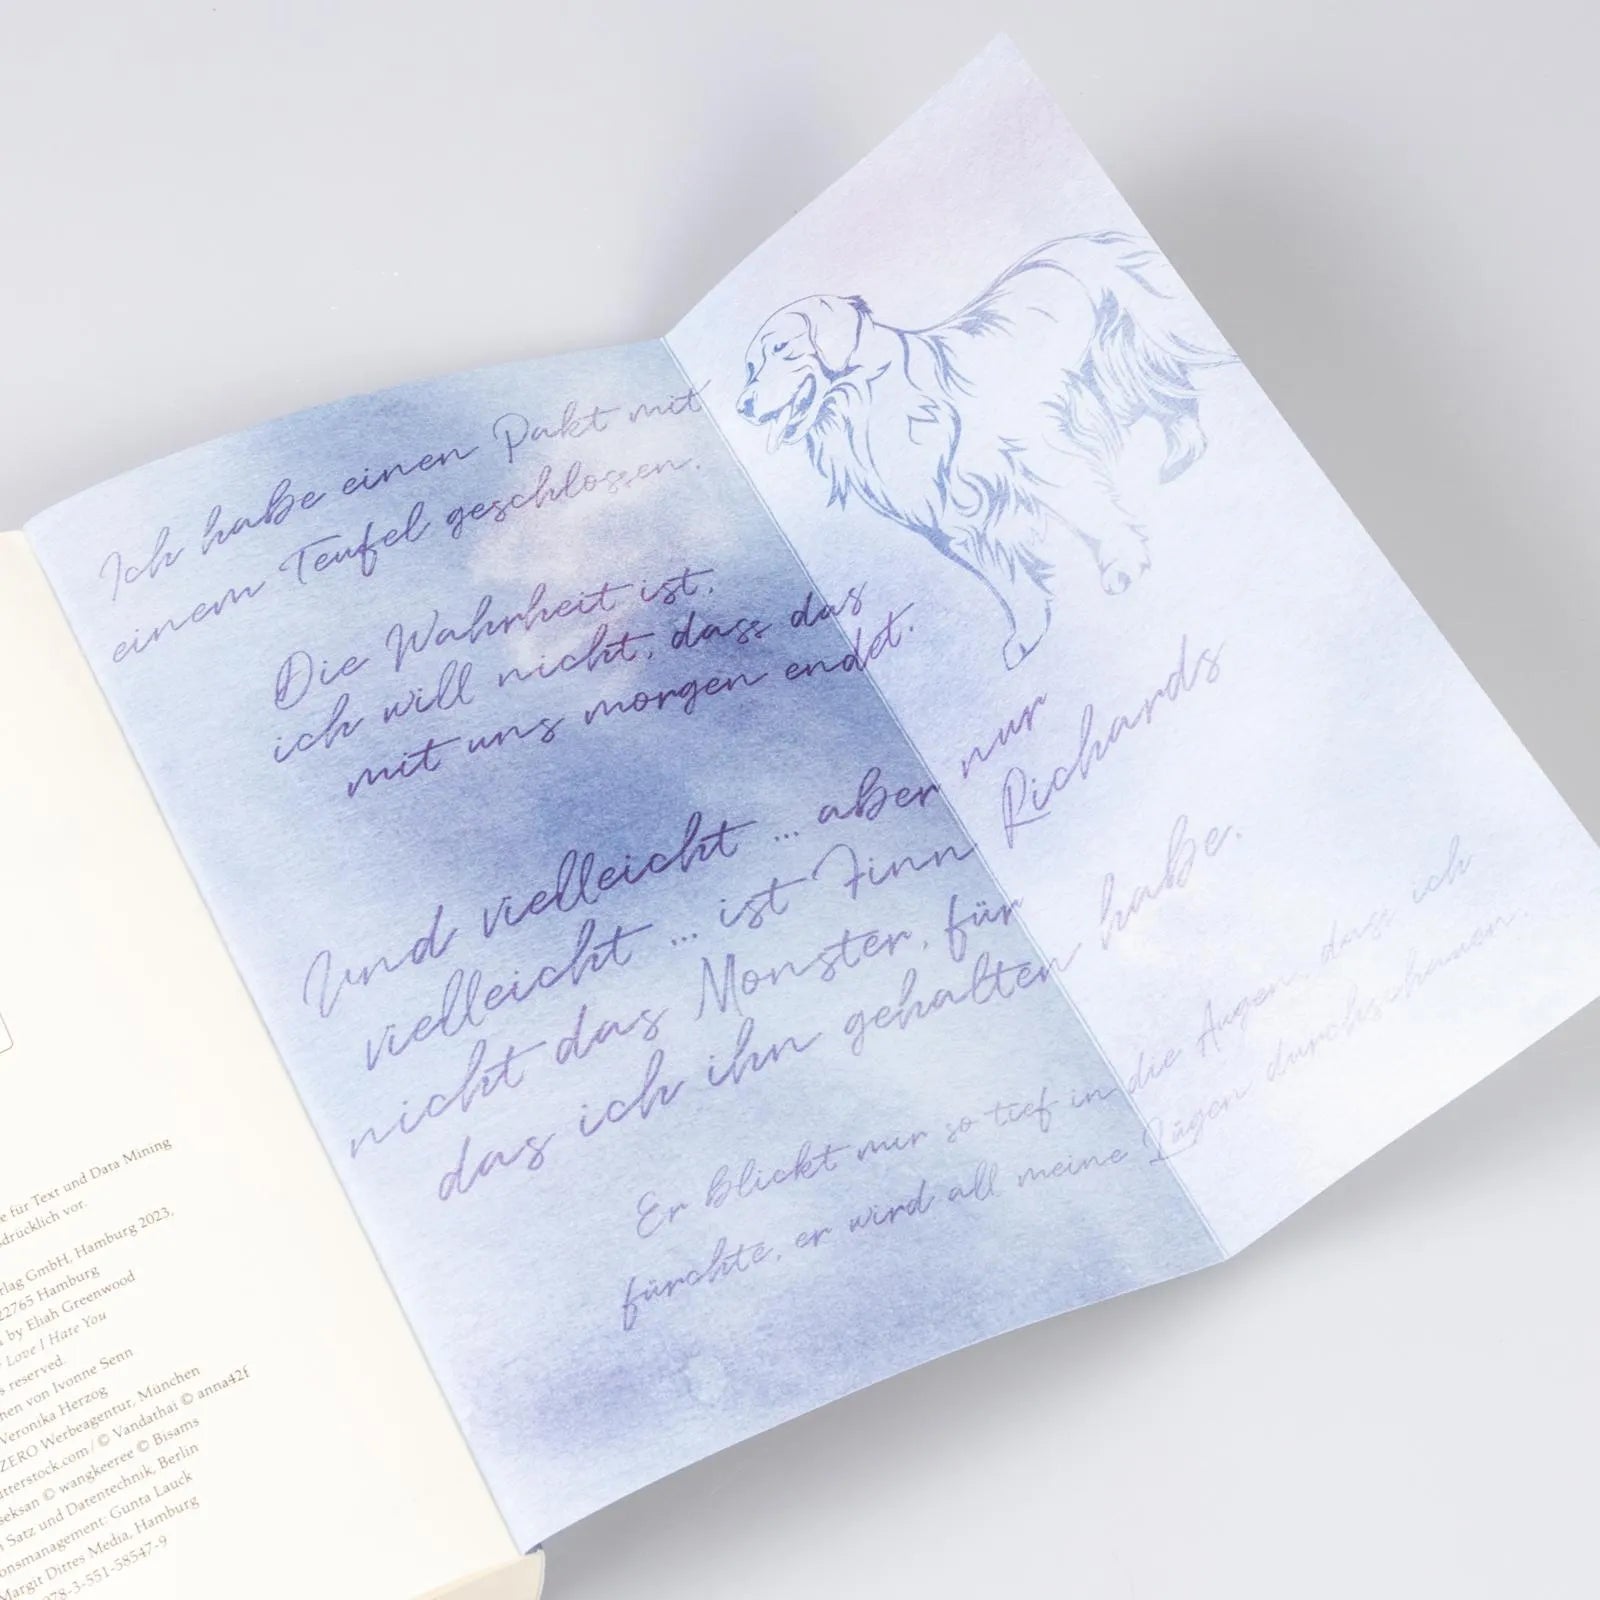 Ich habe einen Pakt mit
einem Teufel geschlossen.
Die Wahrheit ist,
ich will nicht, dass das
mit uns morgen endet.
Und vielleicht ... aber nur
vielleicht ... ist Finn Richards
nicht das Monster, für
das ich ihn gehalten habe.
Er blickt mir so tief in die Augen, dass ich
fürchte, er wird all meine Lügen durchschauen.
e für Text und Data Mining
drücklich vor.
rlag GmbH, Hamburg 2023,
22765 Hamburg
by Eliah Greenwood
Love I Hate You
s reserved.
nen von Ivonne Senn
Veronika Herzog
ZERO Werbeagentur, München
tterstock.com / © Vandathai © anna42f
seksan © wangkeeree © Bisams
n Satz und Datentechnik, Berlin
onsmanagement: Gunta Lauck
Margit Dittes Media, Hamburg
978-3-551-58547-9